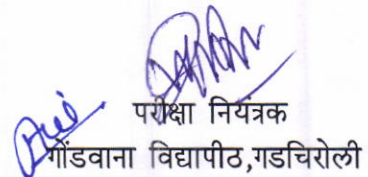 परीक्षा नियत्रक
गोंडवाना विद्यापीठ,गडचिरोली